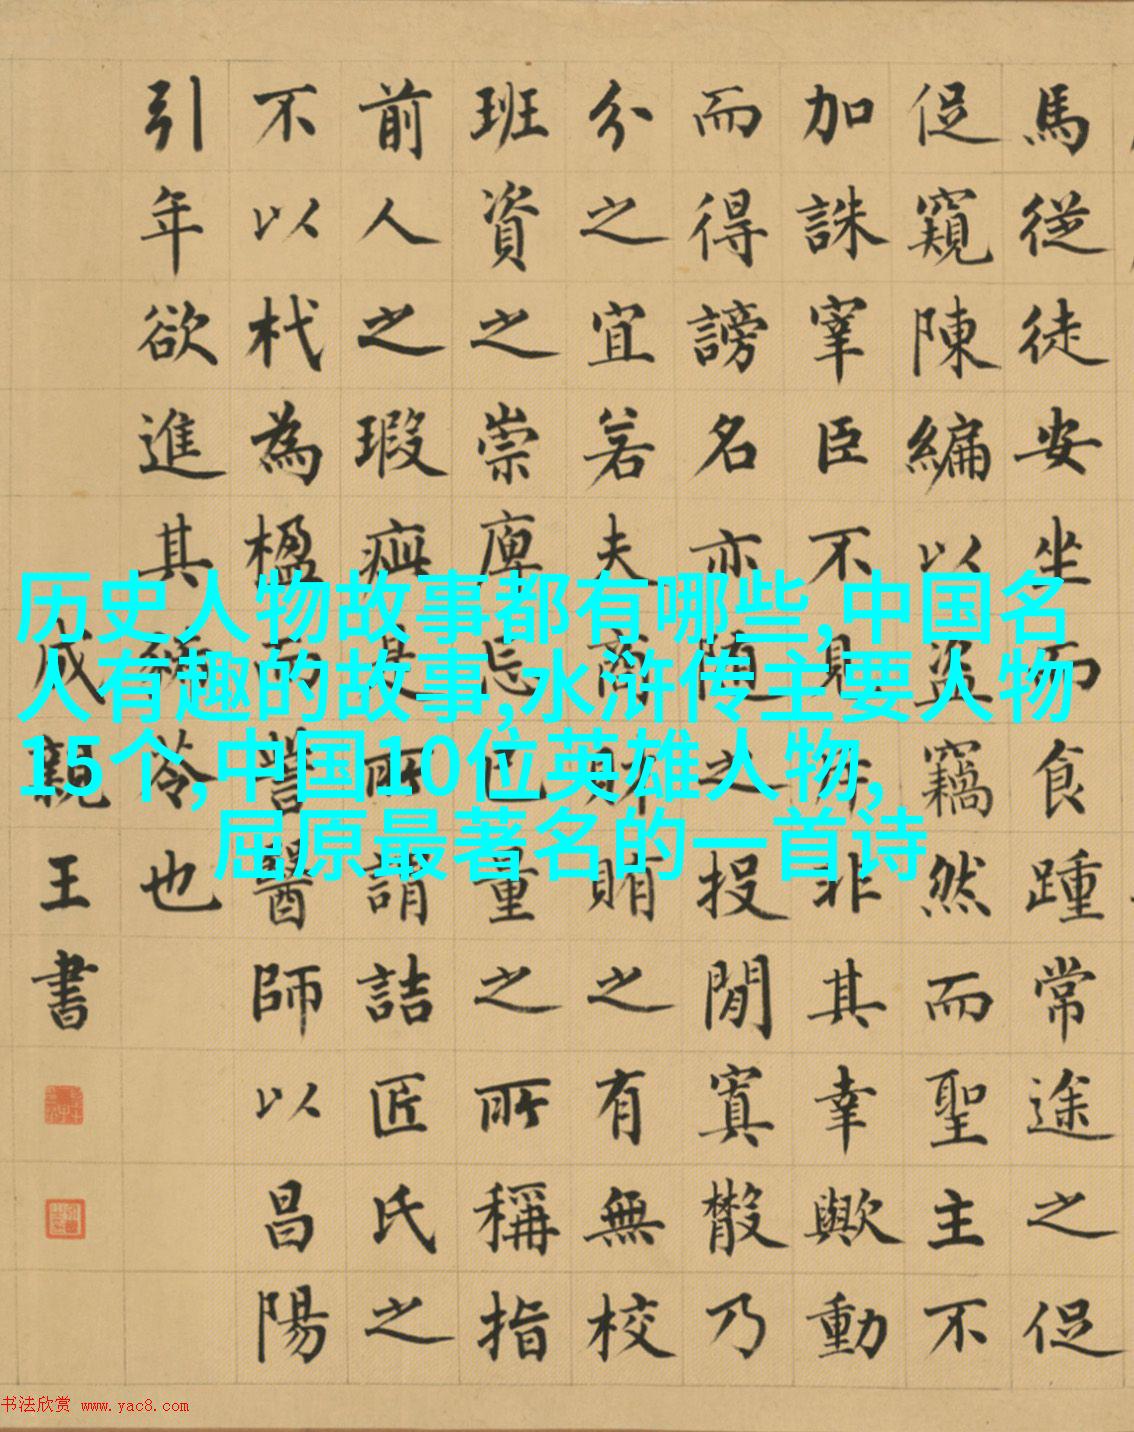 馬從徒安坐而食踵常途之促
促窺陳編以盜竊然而聖主不
加誅宰臣不見斥非其幸歟動
而得謗名亦隨之投閒寘散乃
分之宜若夫商財賄之有無校
班資之崇庳忘己量之所稱指
前人之瑕疵是所謂詰匠氏之
不以杙為楹而訾醫師以昌陽
引年欲進其豨苓也
成親王書
历史人物故事都有哪些,中国名
人有趣的故事,水浒传主要人物
15个,中国10位英雄人物,
屈原最著名的一首诗
书法欣赏 www.yac8.com